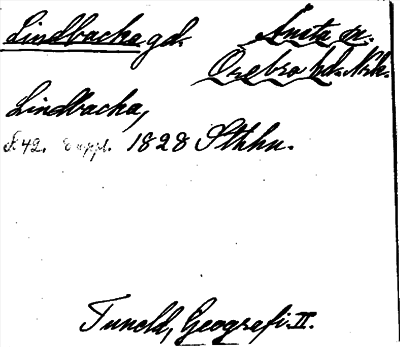 Lindbacka gd.
Ånsta sn.
Örebro hd. Nrk.
Lindbacka,
S 42. Suppl. 1828 Sthhn.
Tuneld, Geografi II.